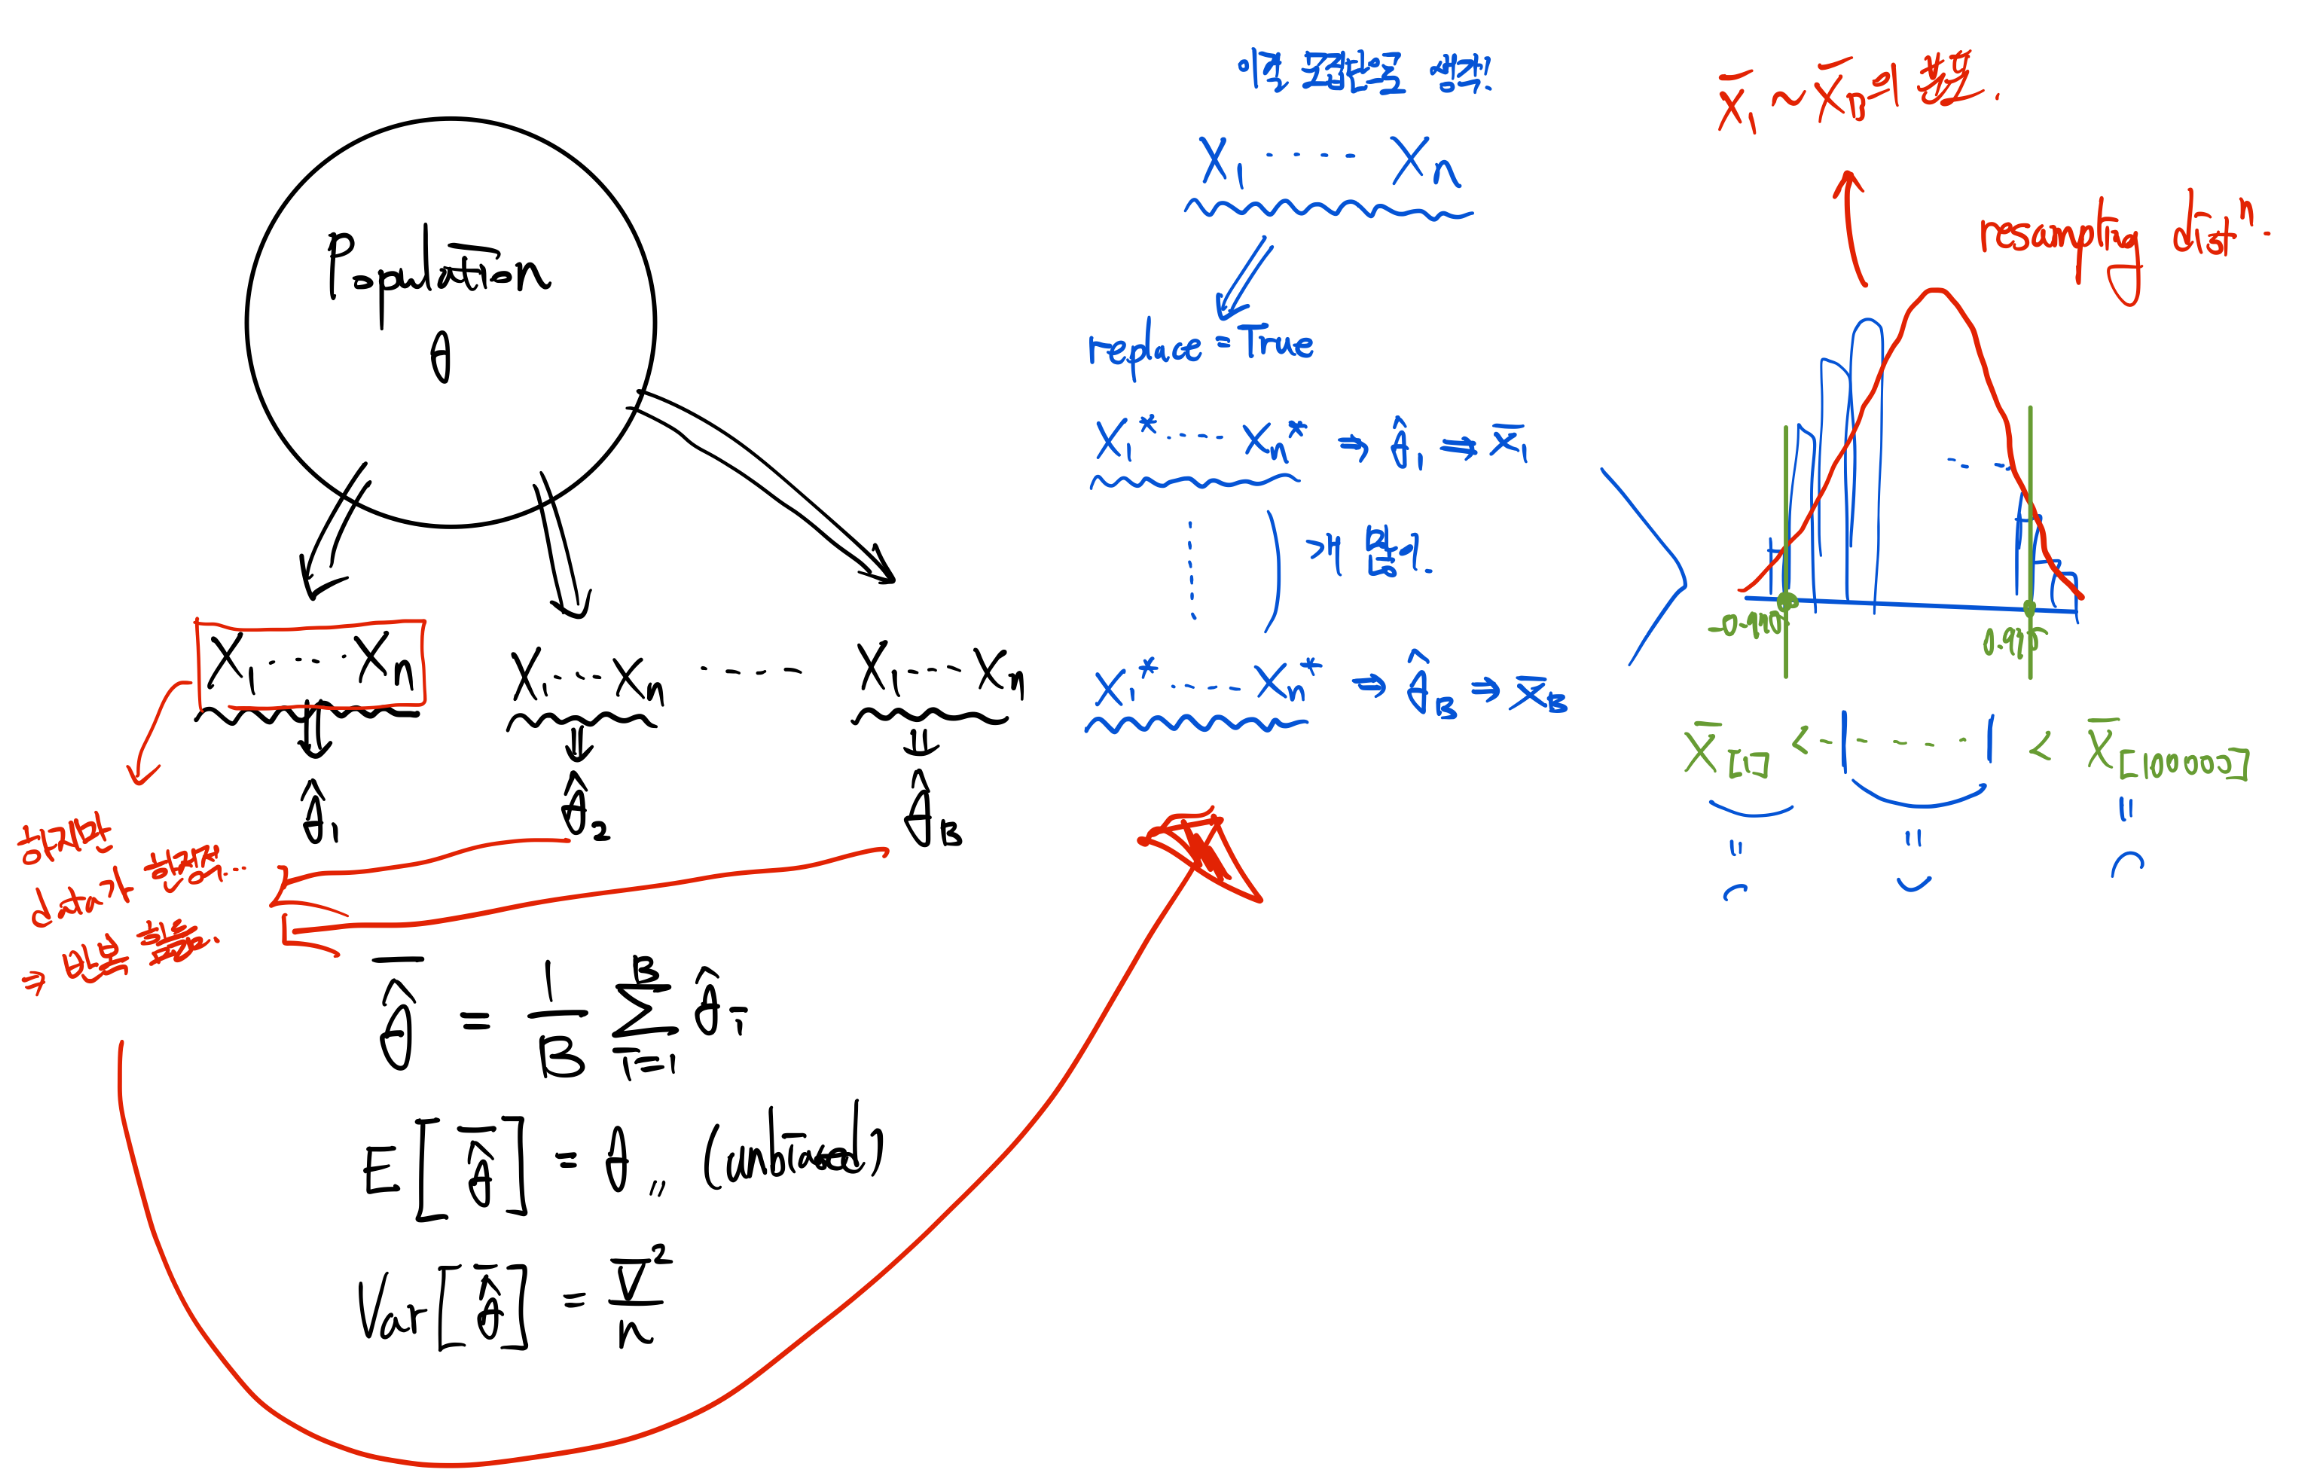 Population
θ
X₁ ····· Xₙ
X₁ ···· Xₙ
·····
X₁ ···· Xₙ
θ̂₁
θ̂₂
θ̂_B
하지만
data가 한정적...
⇒ 반복 활용.
θ̂‾ = 1/B Σ_{i=1}^{B} θ̂ᵢ
E[θ̂‾] = θ,, (unbiased)
Var[θ̂‾] = ∇²/n
이걸 모집단으로 생각!
X₁ ····· Xₙ
replace = True
X₁* ····· Xₙ* ⇒ θ̂₁ ⇒ X̄₁
개 반복.
X₁* ····· Xₙ* ⇒ θ̂_B ⇒ X̄_B
X̄₁ ~ X̄_B의 분포.
resampling distⁿ.
0.975
X̄[1] < ····· < X̄[100000]